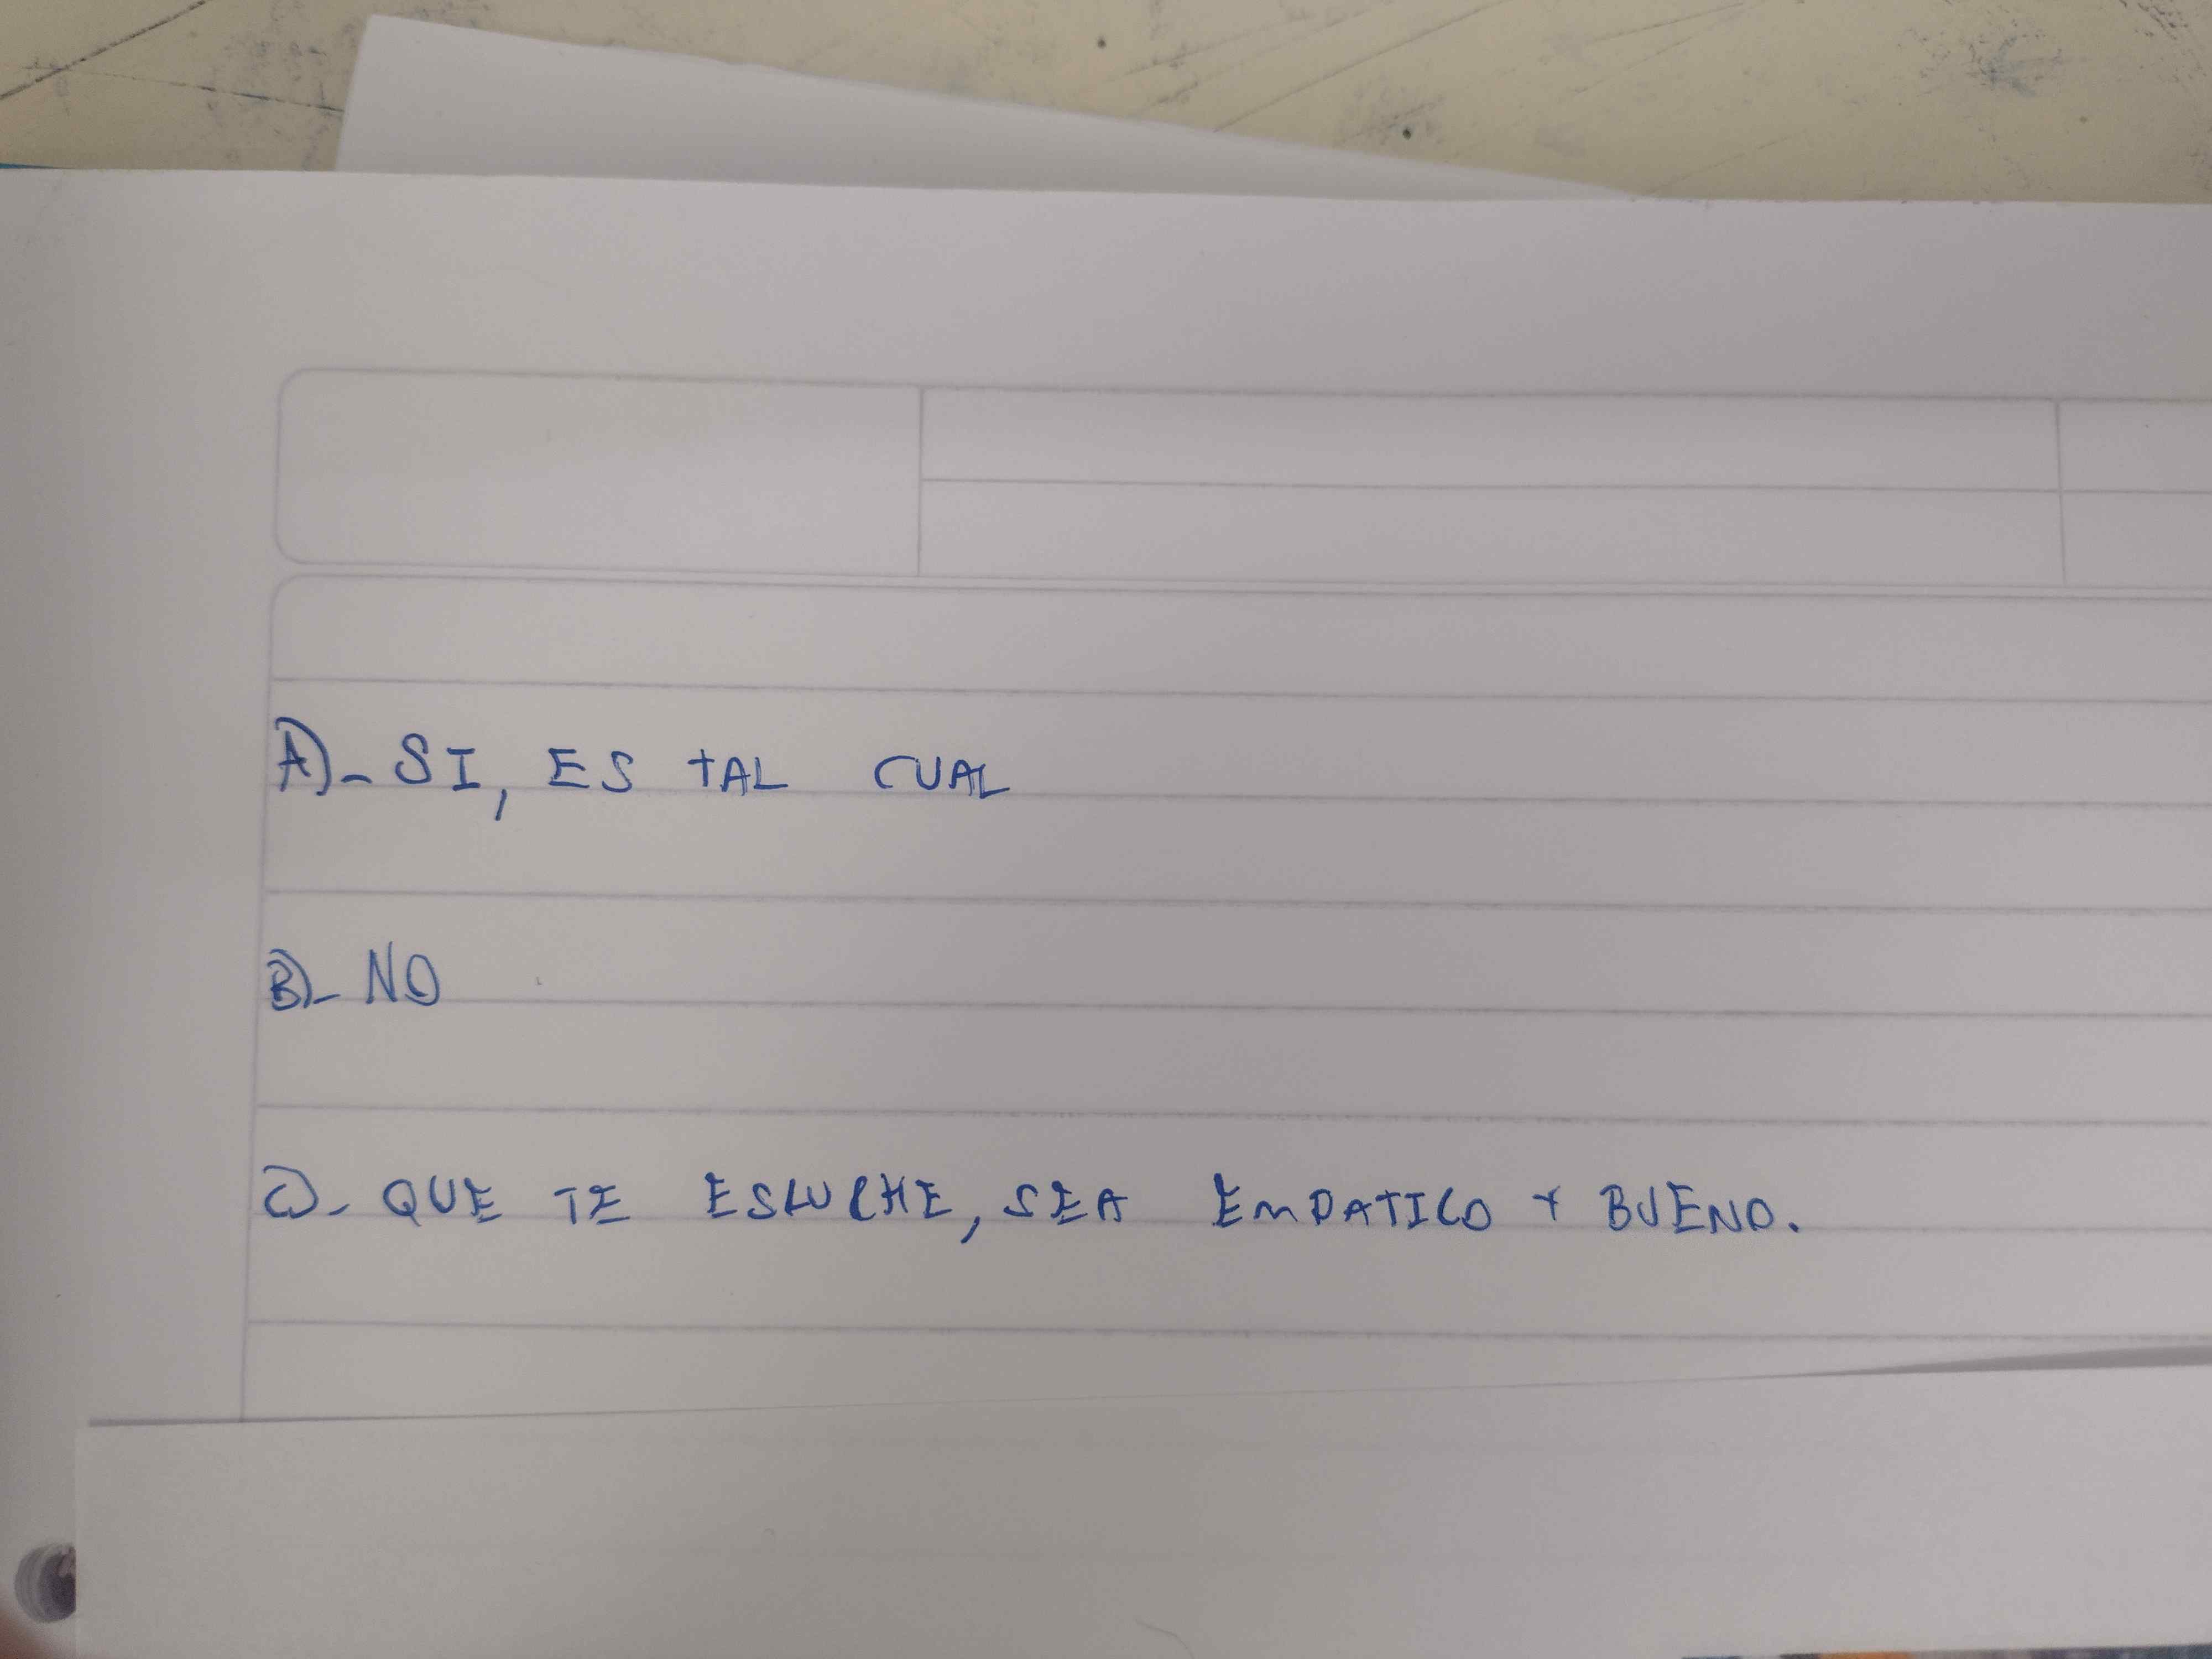 A)- SI, ES TAL CUAL
B)- NO
C)- QUE TE ESCUCHE, SEA EMPATICO Y BUENO.